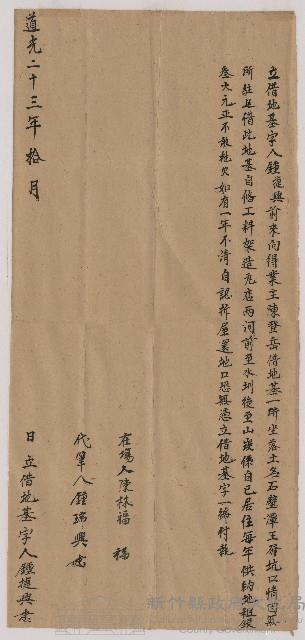 立借地基字人鍾復興前來向得業主陳登岳借地基一所坐落土名石壁潭王爺坑口情因無
所駐足借此地基自俗工料架造瓦店两间前至水圳後至山崁係自已居住每年供納地租銀
叁大元正不敢乾欠如有一年不清自認拆屋還地口恐無憑立借地基字一紙付執
在場人陳林福
代筆人鍾瑞興
道光二十三年拾月 日立借地基字人鍾復興
新竹縣政府文化局